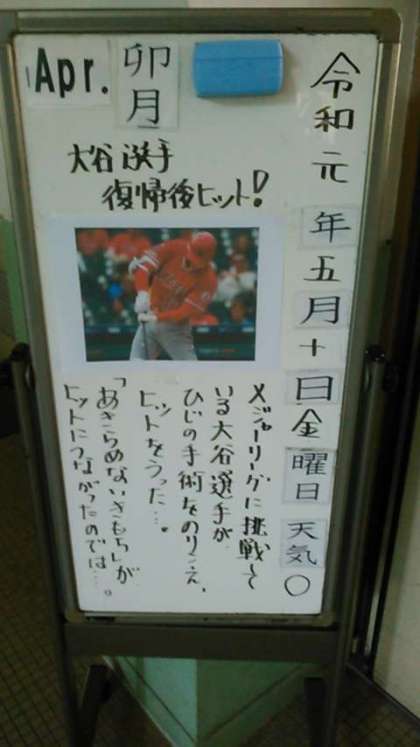 Apr.
卯月
令和元年五月十日金曜日 天気〇
大谷選手
復帰後ヒット!
メジャーリーグに挑戦して
いる大谷選手が
ひじの手術をのりこえ、
ヒットをうった…。
「あきらめないきもち」が
ヒットにつながったのでは…。